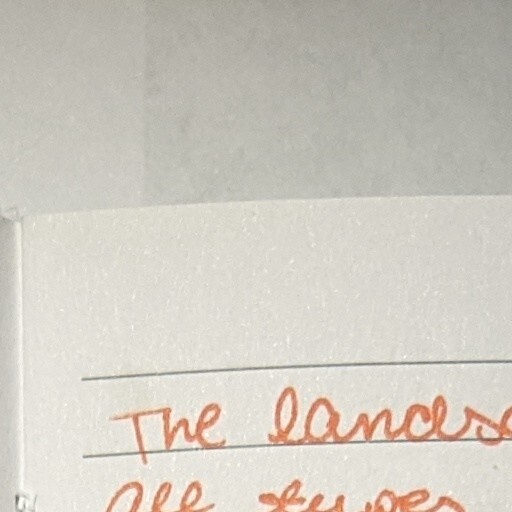 The landsc
all types